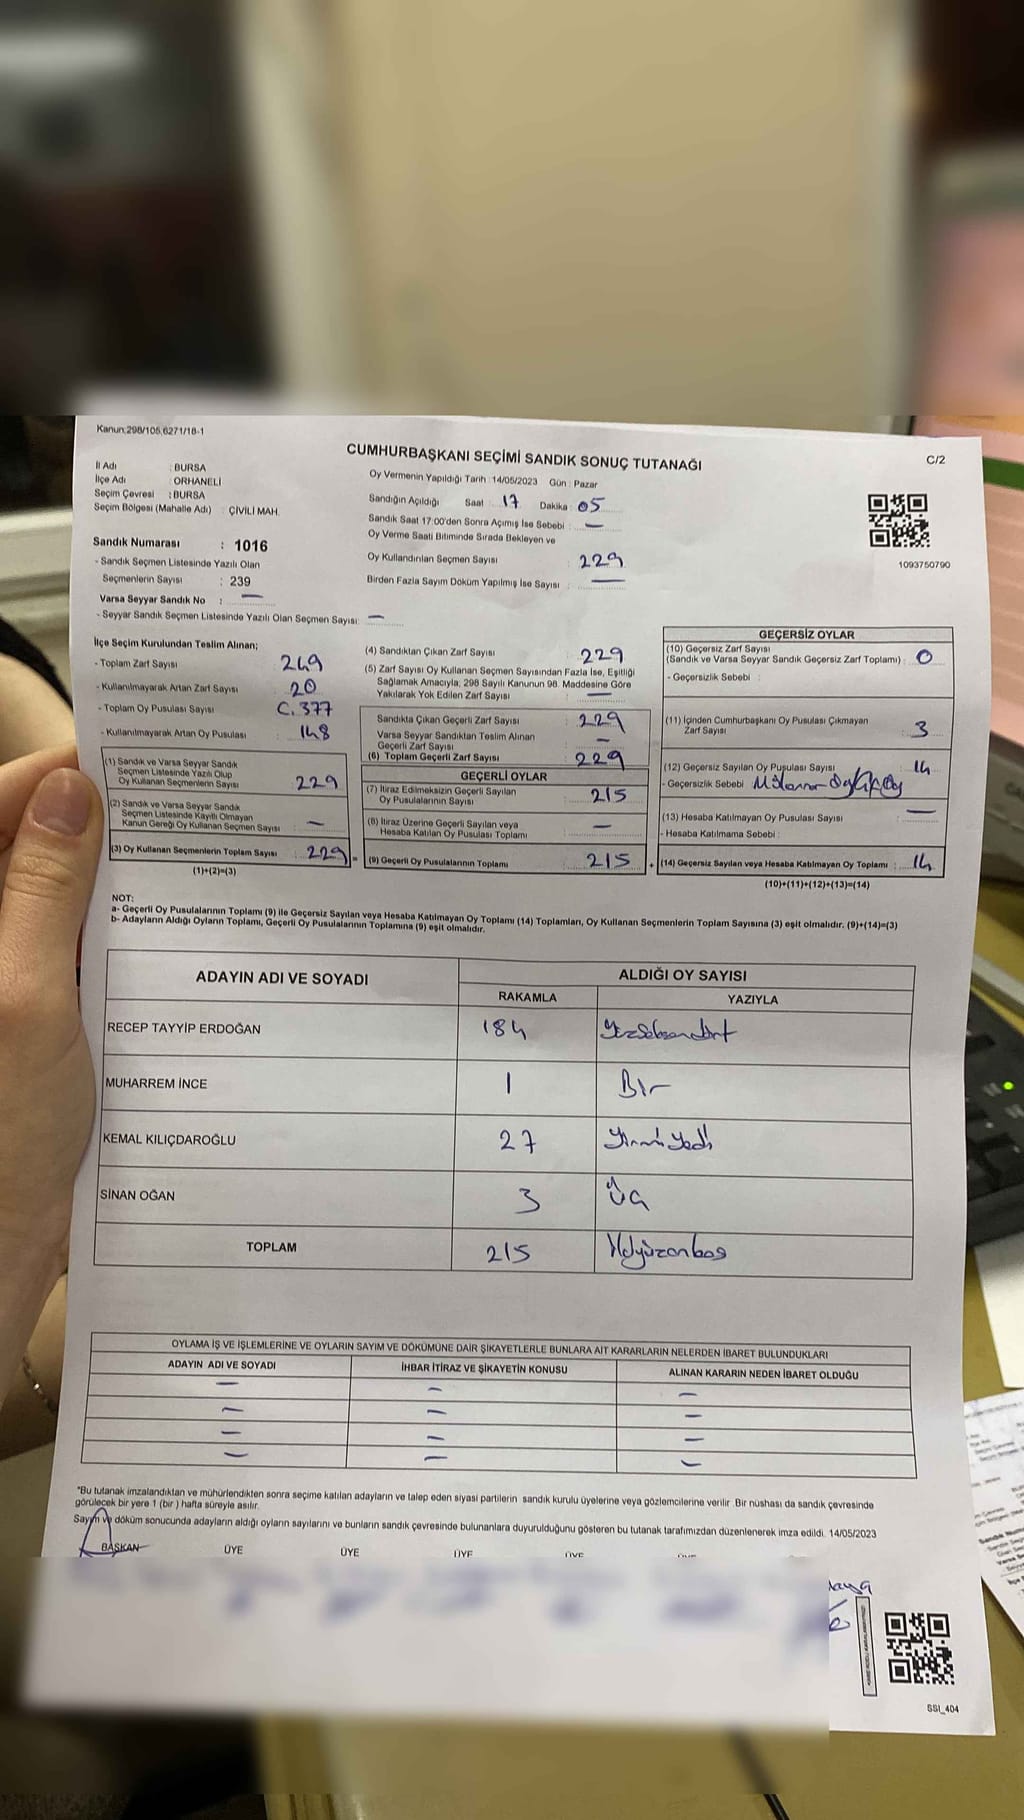 Kanun:298/105,6271/18-1
CUMHURBAŞKANI SEÇİMİ SANDIK SONUÇ TUTANAĞI
C/2
İl Adı : BURSA
İlçe Adı : ORHANELİ
Seçim Çevresi : BURSA
Seçim Bölgesi (Mahalle Adı) : ÇİVİLİ MAH.
Oy Vermenin Yapıldığı Tarih : 14/05/2023 Gün : Pazar
Sandığın Açıldığı Saat : 17 Dakika : 05
Sandık Saat 17:00'den Sonra Açımış İse Sebebi : —
Oy Verme Saati Bitiminde Sırada Bekleyen ve
Oy Kullandırılan Seçmen Sayısı : 229
Birden Fazla Sayım Döküm Yapılmış İse Sayısı : —
1093750790
Sandık Numarası : 1016
- Sandık Seçmen Listesinde Yazılı Olan
Seçmenlerin Sayısı : 239
Varsa Seyyar Sandık No : —
- Seyyar Sandık Seçmen Listesinde Yazılı Olan Seçmen Sayısı: —
İlçe Seçim Kurulundan Teslim Alınan;
- Toplam Zarf Sayısı : 249
- Kullanılmayarak Artan Zarf Sayısı : 20
- Toplam Oy Pusulası Sayısı : C.377
- Kullanılmayarak Artan Oy Pusulası : 148
(1) Sandık ve Varsa Seyyar Sandık
Seçmen Listesinde Yazılı Olup
Oy Kullanan Seçmenlerin Sayısı : 229
(2) Sandık ve Varsa Seyyar Sandık
Seçmen Listesinde Kayıtlı Olmayan
Kanun Gereği Oy Kullanan Seçmen Sayısı : —
(3) Oy Kullanan Seçmenlerin Toplam Sayısı : 229 =
(1)+(2)=(3)
(4) Sandıktan Çıkan Zarf Sayısı : 229
(5) Zarf Sayısı Oy Kullanan Seçmen Sayısından Fazla İse, Eşitliği
Sağlamak Amacıyla; 298 Sayılı Kanunun 98. Maddesine Göre
Yakılarak Yok Edilen Zarf Sayısı : —
Sandıkta Çıkan Geçerli Zarf Sayısı : 229
Varsa Seyyar Sandıktan Teslim Alınan
Geçerli Zarf Sayısı : —
(6) Toplam Geçerli Zarf Sayısı : 229
GEÇERLİ OYLAR
(7) İtiraz Edilmeksizin Geçerli Sayılan
Oy Pusulalarının Sayısı : 215
(8) İtiraz Üzerine Geçerli Sayılan veya
Hesaba Katılan Oy Pusulası Toplamı : —
(9) Geçerli Oy Pusulalarının Toplamı : 215 +
GEÇERSİZ OYLAR
(10) Geçersiz Zarf Sayısı
(Sandık ve Varsa Seyyar Sandık Geçersiz Zarf Toplamı) : 0
- Geçersizlik Sebebi :
(11) İçinden Cumhurbaşkanı Oy Pusulası Çıkmayan
Zarf Sayısı : 3
(12) Geçersiz Sayılan Oy Pusulası Sayısı : 14
- Geçersizlik Sebebi
(13) Hesaba Katılmayan Oy Pusulası Sayısı : —
- Hesaba Katılmama Sebebi :
(14) Geçersiz Sayılan veya Hesaba Katılmayan Oy Toplamı : 14
(10)+(11)+(12)+(13)=(14)
NOT:
a- Geçerli Oy Pusulalarının Toplamı (9) ile Geçersiz Sayılan veya Hesaba Katılmayan Oy Toplamı (14) Toplamları, Oy Kullanan Seçmenlerin Toplam Sayısına (3) eşit olmalıdır. (9)+(14)=(3)
b- Adayların Aldığı Oyların Toplamı, Geçerli Oy Pusulalarının Toplamına (9) eşit olmalıdır.
ADAYIN ADI VE SOYADI
ALDIĞI OY SAYISI
RAKAMLA YAZIYLA
RECEP TAYYİP ERDOĞAN 184 Yüzseksendört
MUHARREM İNCE 1 Bir
KEMAL KILIÇDAROĞLU 27 Yirmiyedi
SİNAN OĞAN 3 Üç
TOPLAM 215 İkiyüzonbeş
OYLAMA İŞ VE İŞLEMLERİNE VE OYLARIN SAYIM VE DÖKÜMÜNE DAİR ŞİKAYETLERLE BUNLARA AİT KARARLARIN NELERDEN İBARET BULUNDUKLARI
ADAYIN ADI VE SOYADI İHBAR İTİRAZ VE ŞİKAYETİN KONUSU ALINAN KARARIN NEDEN İBARET OLDUĞU
— — —
— — —
— — —
— — —
*Bu tutanak imzalandıktan ve mühürlendikten sonra seçime katılan adayların ve talep eden siyasi partilerin sandık kurulu üyelerine veya gözlemcilerine verilir. Bir nüshası da sandık çevresinde
görülecek bir yere 1 (bir ) hafta süreyle asılır.
Sayım ve döküm sonucunda adayların aldığı oyların sayılarını ve bunların sandık çevresinde bulunanlara duyurulduğunu gösteren bu tutanak tarafımızdan düzenlenerek imza edildi. 14/05/2023
BAŞKAN ÜYE ÜYE ÜYE ÜYE
SSI_404